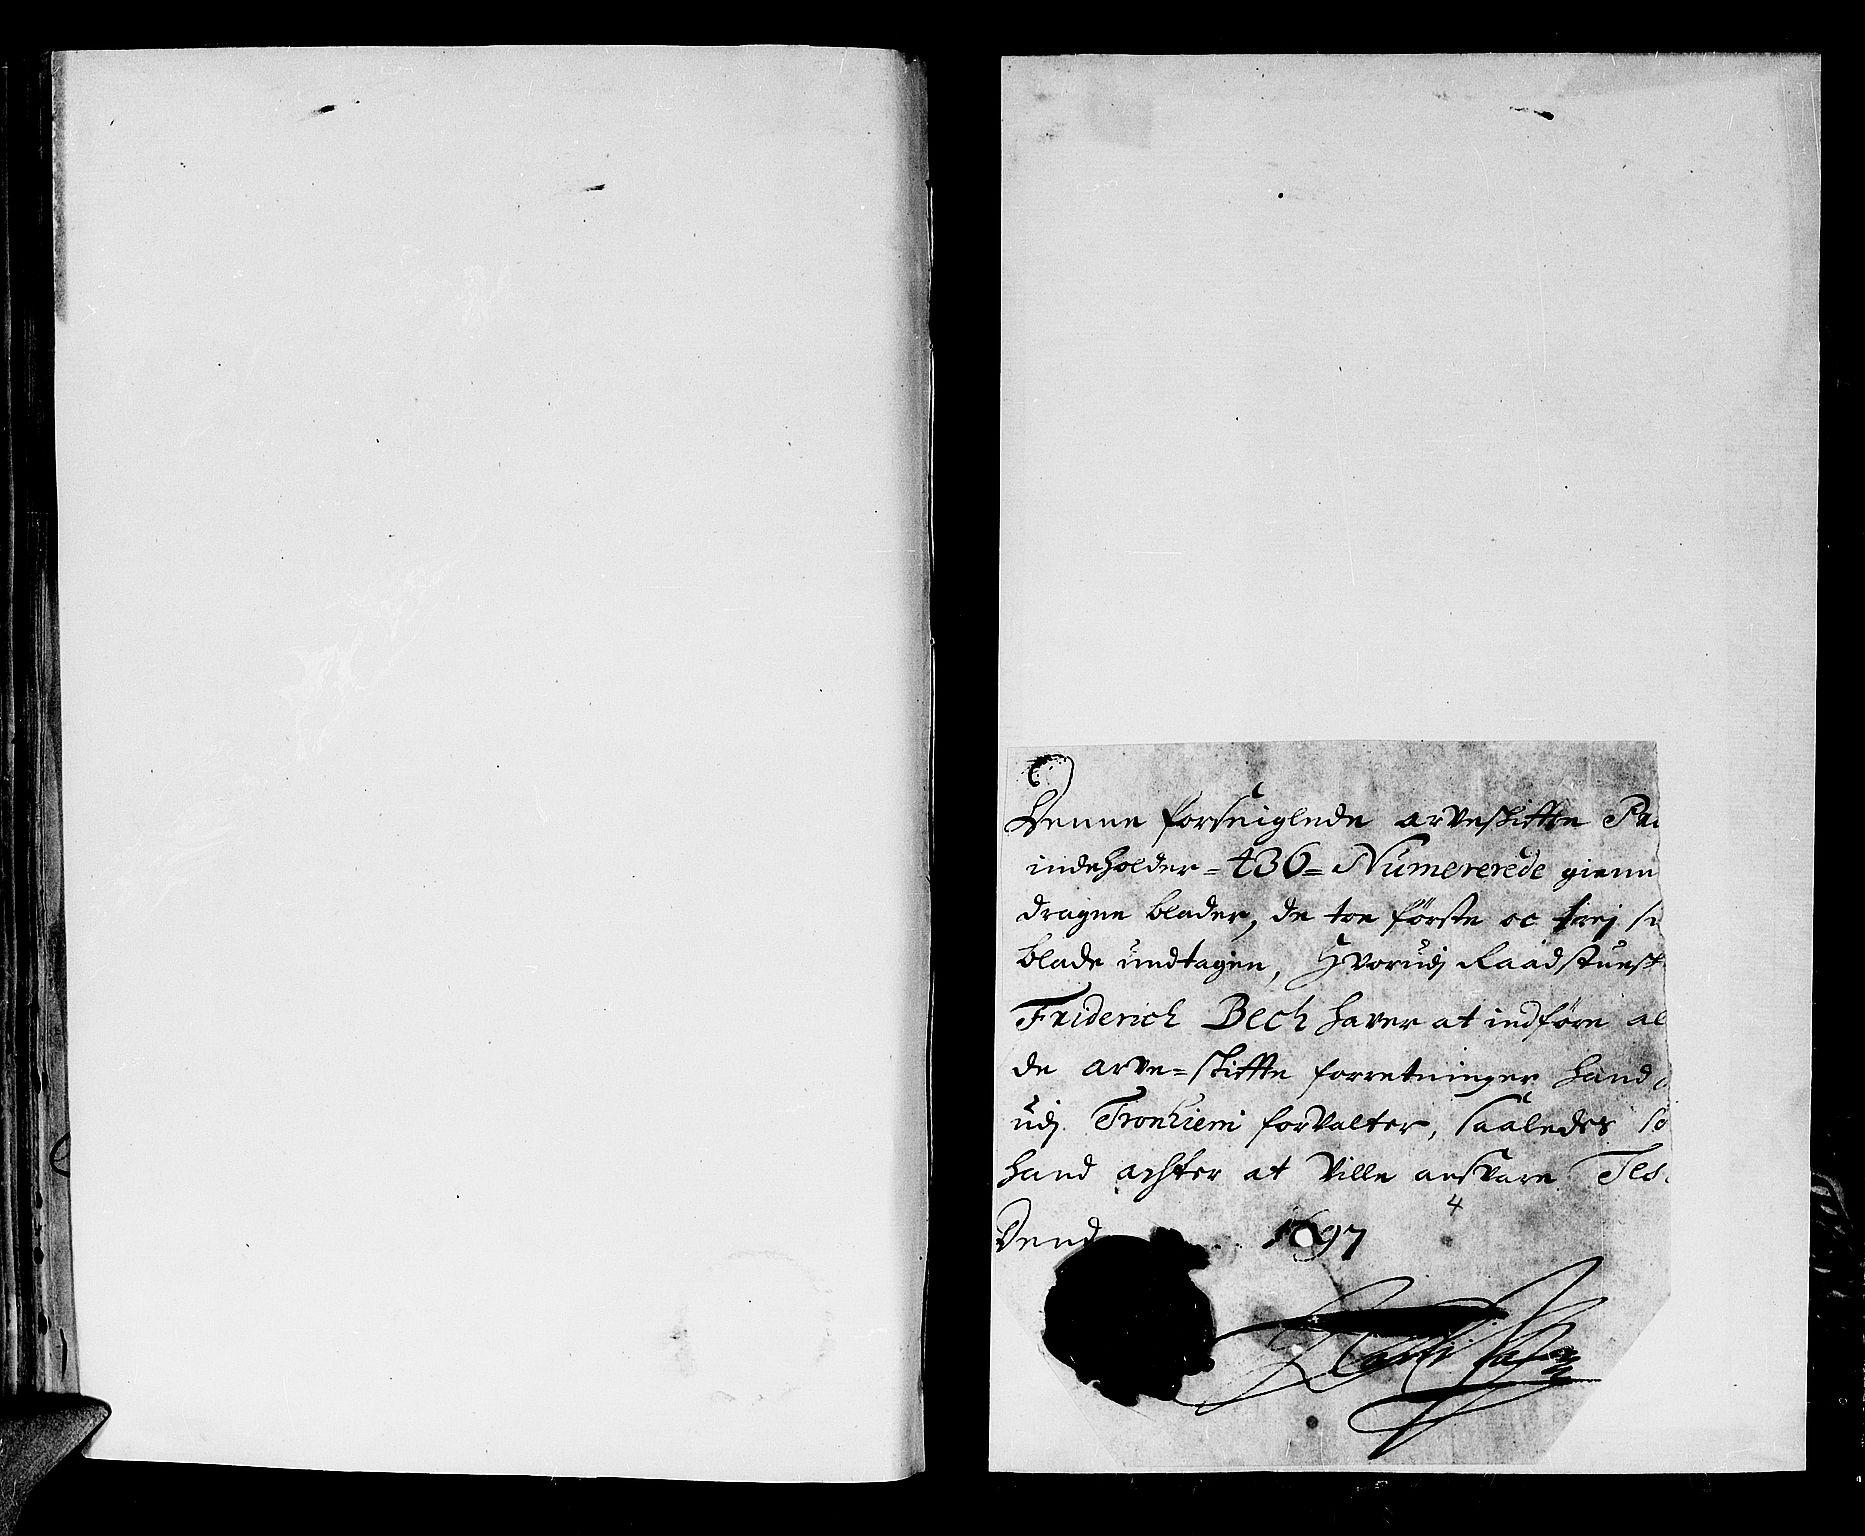 Denne forseiglede arveskifte Pro
indeholder = 430 = Numererede gienn
dragne blader, de toe förste oc trej si
blade undtagen, Hvorudj Raadstuesk
Friderich Bech haver at indföre al
de arve=skifte forretninger hand
udj Tronhiem forvalter, saaledes so
hand achter at ville ansvare Tes
4
Dend 1697